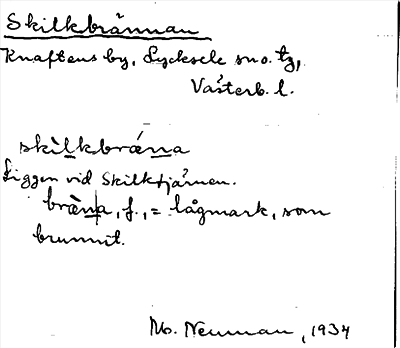 Skilkbrännan
Knaftens by, Lycksele sno. tg,
Västerb. l.
skilkbræna
Ligger vid Skilktjärnen.
bræna, f., = lågmark, som
brunnit.
M. Neuman, 1934